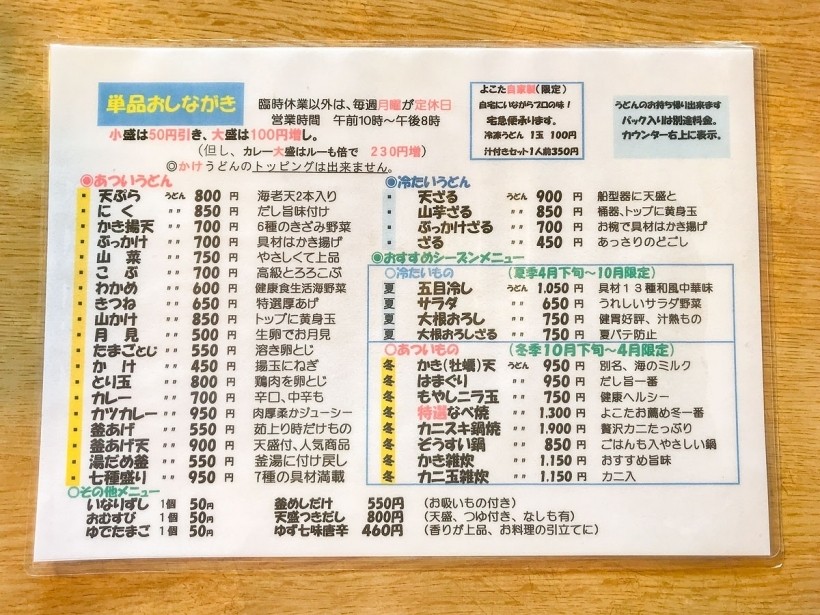 単品おしながき
臨時休業以外は、毎週月曜が定休日
営業時間 午前10時～午後8時
小盛は50円引き、大盛は100円増し。
(但し、カレー大盛はルーも倍で 230円増)
◎かけうどんのトッピングは出来ません。
よこた自家製(限定)
自宅にいながらプロの味!
宅急便承ります。
冷凍うどん 1玉 100円
汁付きセット1人前350円
うどんのお持ち帰り出来ます
パック入りは別途料金。
カウンター右上に表示。
◎あついうどん
天ぷら うどん 800 円 海老天2本入り
にく 〃 850 円 だし旨味付け
かき揚天 〃 700 円 6種のきざみ野菜
ぶっかけ 〃 700 円 具材はかき揚げ
山菜 〃 750 円 やさしくて上品
こぶ 〃 700 円 高級とろろこぶ
わかめ 〃 600 円 健康食生活海野菜
きつね 〃 650 円 特選厚あげ
山かけ 〃 850 円 トップに黄身玉
月見 〃 500 円 生卵でお月見
たまごとじ 〃 550 円 溶き卵とじ
かけ 〃 450 円 揚玉にねぎ
とり玉 〃 800 円 鶏肉を卵とじ
カレー 〃 700 円 辛口、中辛も
カツカレー 〃 950 円 肉厚柔かジューシー
釜あげ 〃 550 円 茹上り時だけもの
釜あげ天 〃 900 円 天盛付、人気商品
湯だめ釜 〃 550 円 釜湯に付け戻し
七種盛り 〃 950 円 7種の具材満載
◎冷たいうどん
天ざる うどん 900 円 船型器に天盛と
山芋ざる 〃 850 円 桶器、トップに黄身玉
ぶっかけざる 〃 700 円 お椀で具材はかき揚げ
ざる 〃 450 円 あっさりのどごし
◎おすすめシーズンメニュー
○冷たいもの (夏季4月下旬～10月限定)
夏 五目冷し うどん 1.050 円 具材13種和風中華味
夏 サラダ 〃 650 円 うれしいサラダ野菜
夏 大根おろし 〃 750 円 健胃好評、汁熱もの
夏 大根おろしざる 〃 750 円 夏バテ防止
○あついもの (冬季10月下旬～4月限定)
冬 かき(牡蠣)天 うどん 950 円 別名、海のミルク
冬 はまぐり 〃 950 円 だし旨一番
冬 もやしニラ玉 〃 750 円 健康ヘルシー
冬 特選なべ焼 〃 1.300 円 よこたお薦め冬一番
冬 カニスキ鍋焼 〃 1.900 円 贅沢カニたっぷり
冬 ぞうすい鍋 〃 850 円 ごはんも入やさしい鍋
冬 かき雑炊 〃 1.150 円 おすすめ旨味
冬 カニ玉雑炊 〃 1.150 円 カニ入
○その他メニュー
いなりずし 1個 50円 釜めしだけ 550円 (お吸いもの付き)
おむすび 1個 50円 天盛つきだし 800円 (天盛、つゆ付き、なしも有)
ゆでたまご 1個 50円 ゆず七味唐辛 460円 (香りが上品、お料理の引立てに)